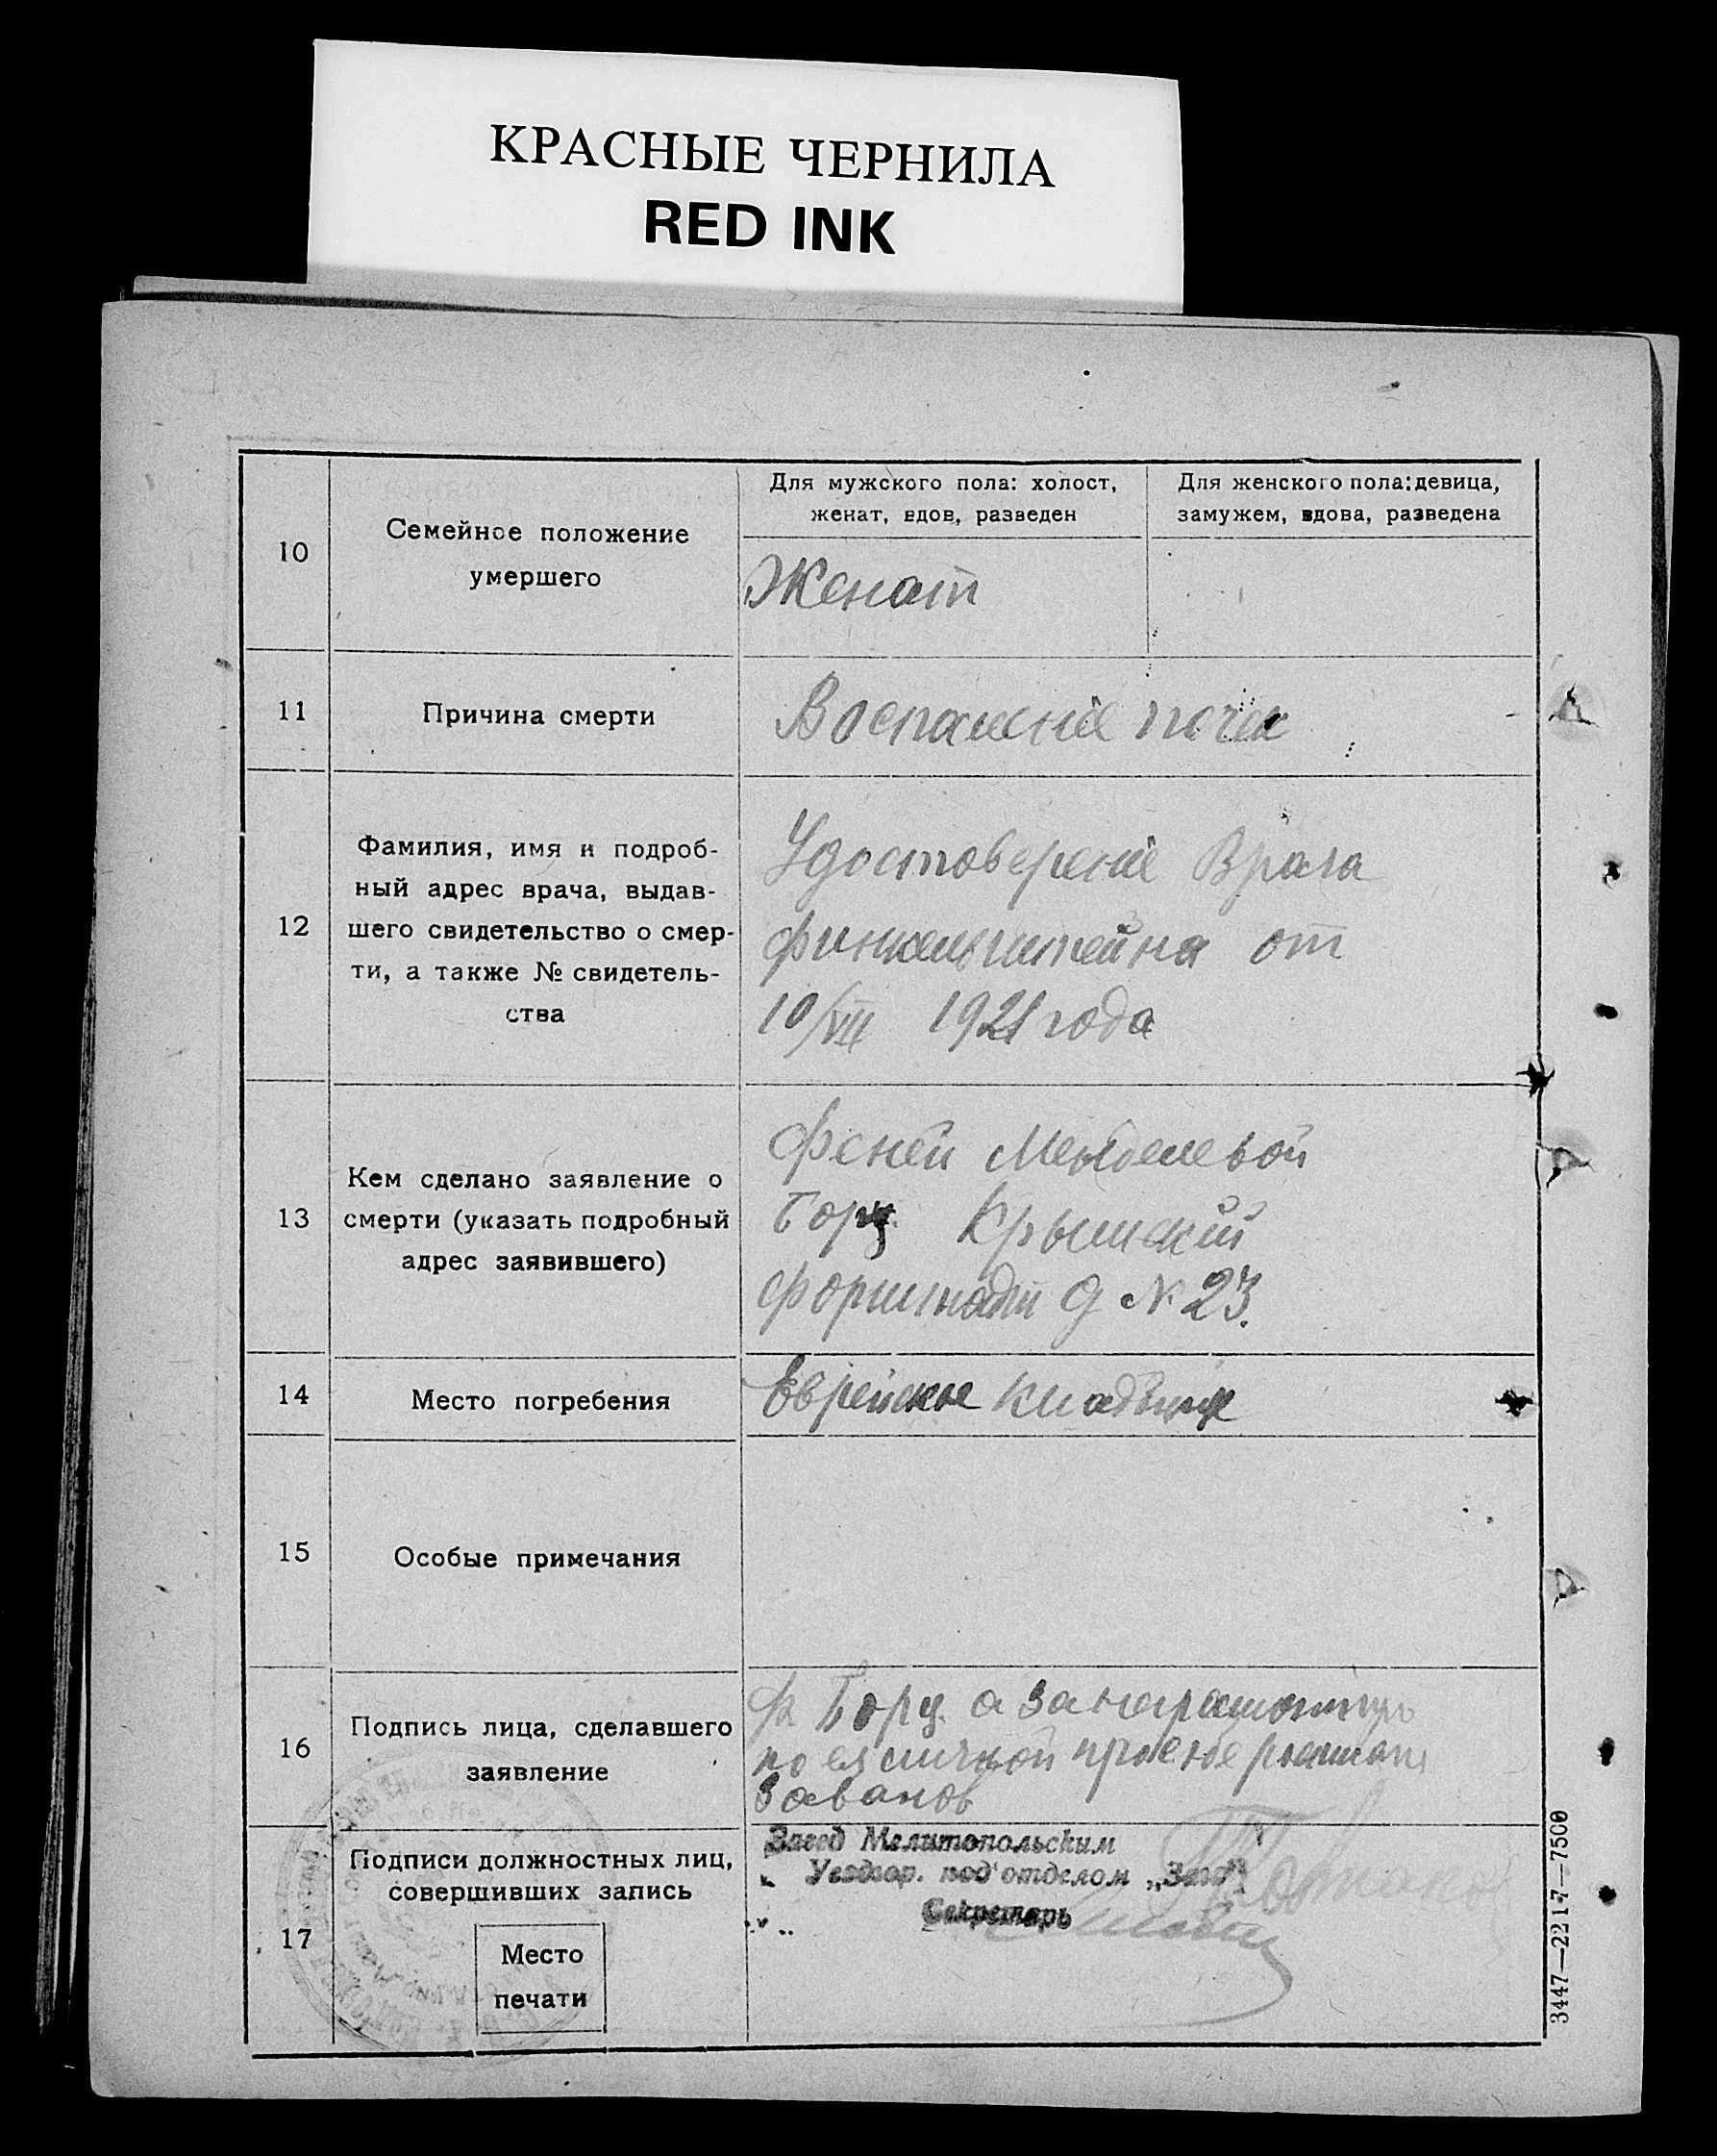 КРАСНЫЕ ЧЕРНИЛА
RED INK
10
Семейное положение
умершего
Для мужского пола: холост,
женат, вдов, разведен
Для женского пола: девица,
замужем, вдова, разведена
Женат
11
Причина смерти
Воспаление почек
12
Фамилия, имя и подроб-
ный адрес врача, выдав-
шего свидетельство о смер-
ти, а также № свидетель-
ства
Удостоверение Врача
Финкельштейна от
10/VIII 1921 года
13
Кем сделано заявление о
смерти (указать подробный
адрес заявившего)
Феней
Борц Крымский
форштадт д № 23.
14
Место погребения
Еврейское кладбище
15
Особые примечания
16
Подпись лица, сделавшего
заявление
Борц. а за неграмотную
по ея личной просьбе
17
Подписи должностных лиц,
совершивших запись
Место
печати
Завед Мелитопольским
Уездгор. под'отделом „Загс"
Секретарь
3447—2217—7500